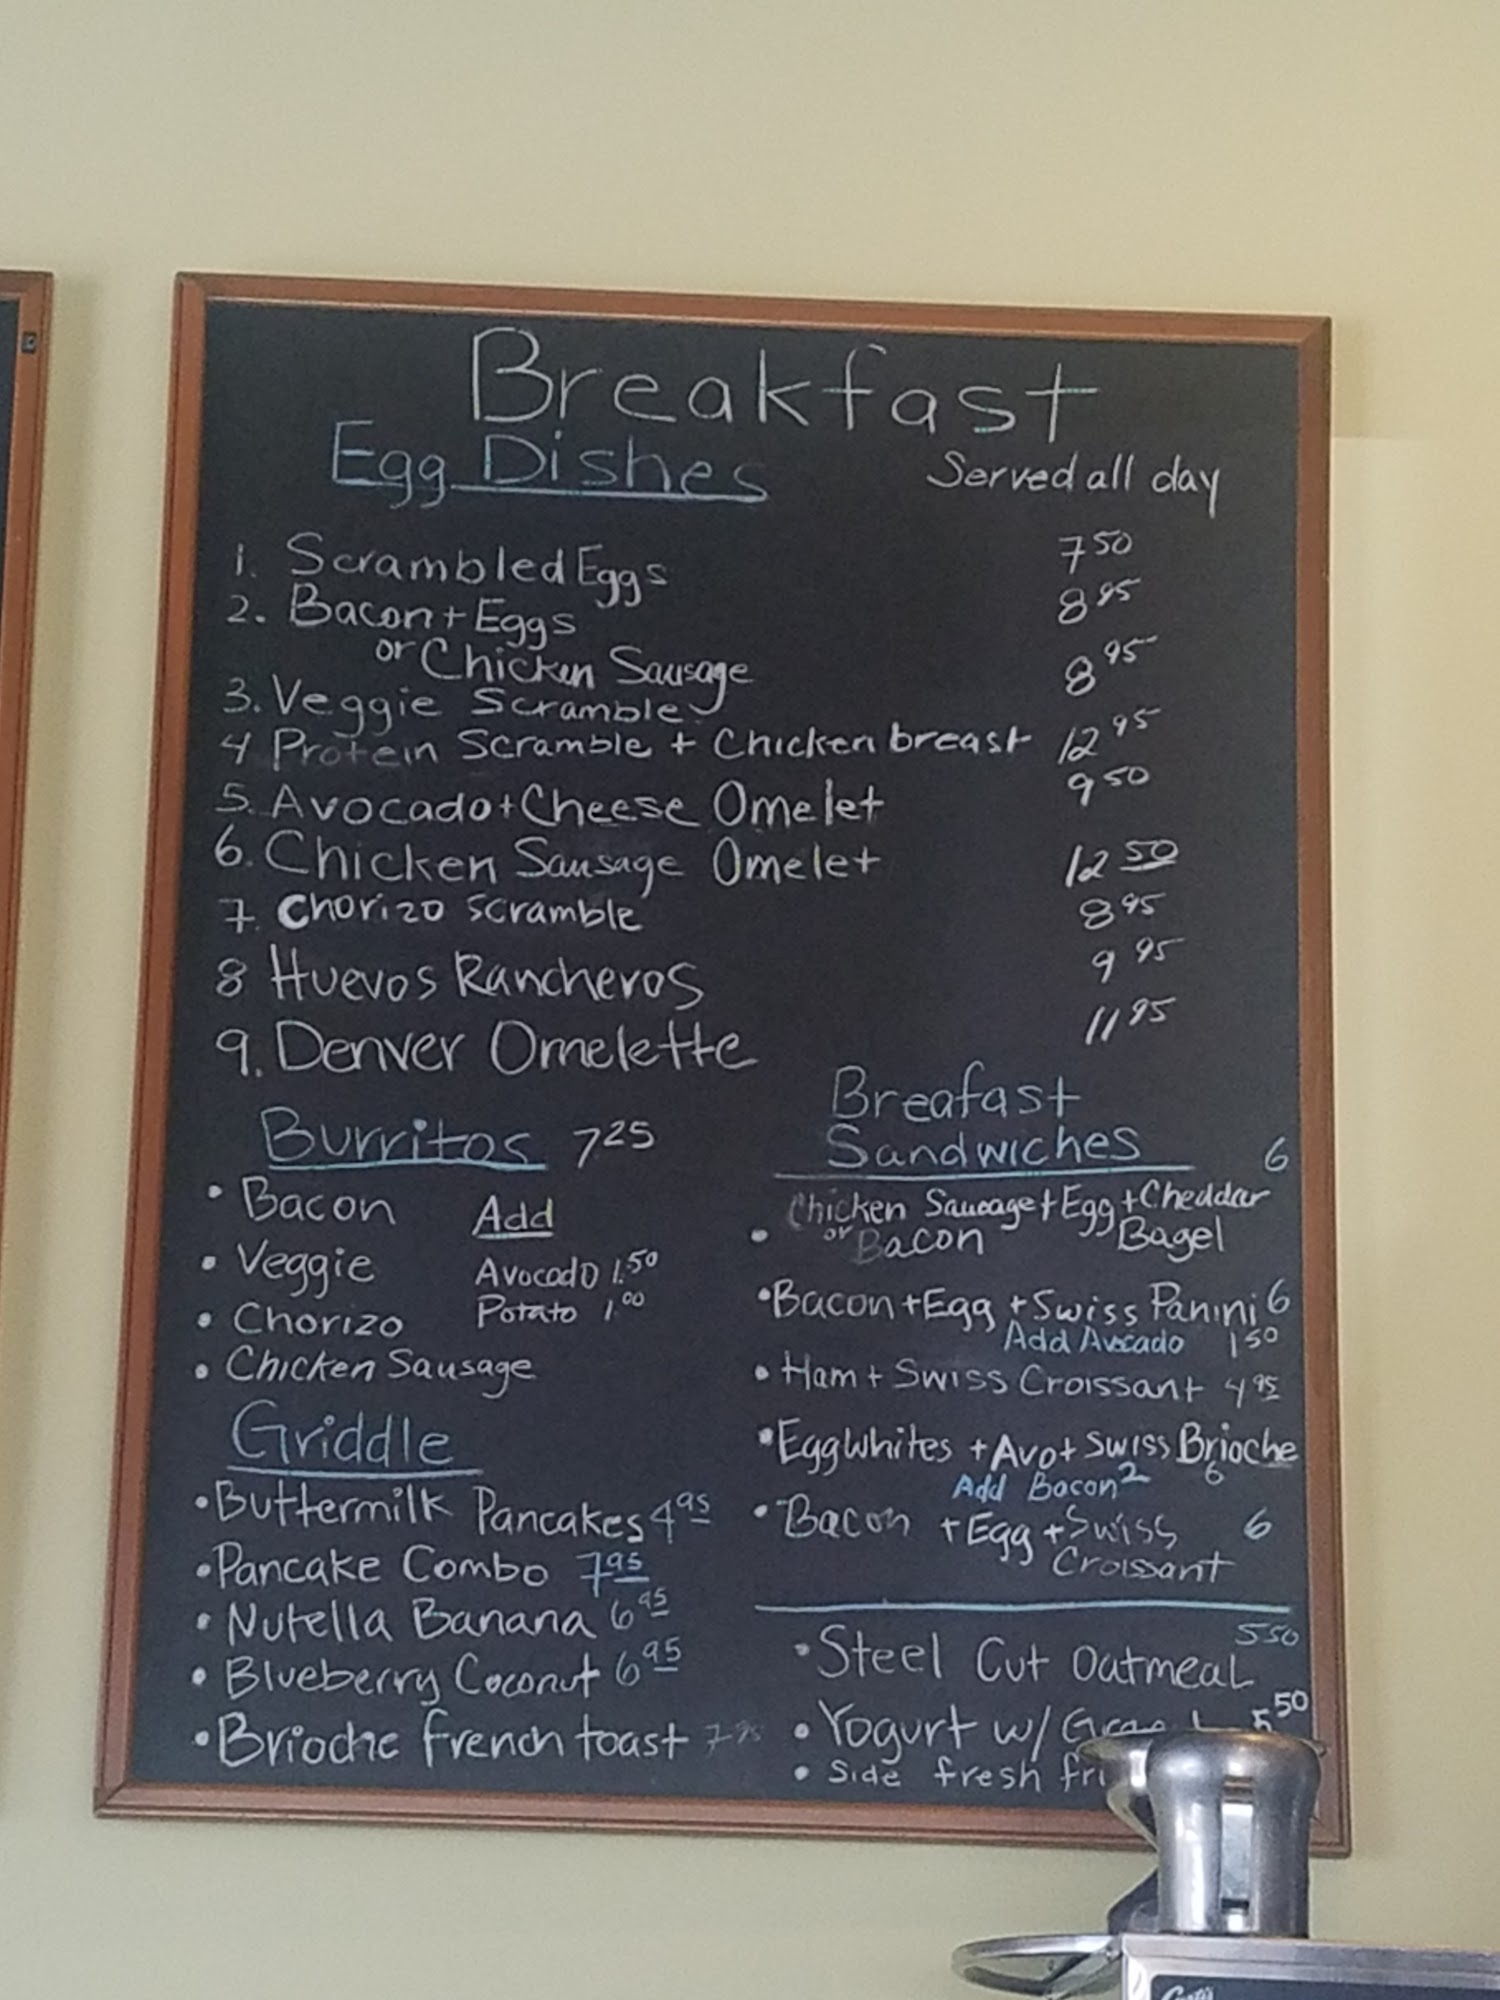 Breakfast
Egg Dishes Served all day
1. Scrambled Eggs 7 50
2. Bacon + Eggs 8 95
or Chicken Sausage
3. Veggie Scramble 8 95
4 Protein Scramble + Chicken breast 12 95
5. Avocado + Cheese Omelet 9 50
6. Chicken Sausage Omelet 12 50
7. Chorizo Scramble 8 95
8 Huevos Rancheros 9 95
9. Denver Omelette 11 95
Burritos 7 25
• Bacon
• Veggie
• Chorizo
• Chicken Sausage
Add
Avocado 1.50
Potato 1.00
Griddle
• Buttermilk Pancakes 4 95
• Pancake Combo 7 95
• Nutella Banana 6 95
• Blueberry Coconut 6 95
• Brioche french toast 7 95
Breafast
Sandwiches 6
Chicken Sausage + Egg + Cheddar
• or Bacon Bagel
• Bacon + Egg + Swiss Panini 6
Add Avocado 1 50
• Ham + Swiss Croissant 4 95
• Egg Whites + Avo + Swiss Brioche
Add Bacon 2 6
• Bacon + Egg + Swiss 6
Croissant
5 50
• Steel Cut Oatmeal
• Yogurt w/ 5 50
• Side fresh